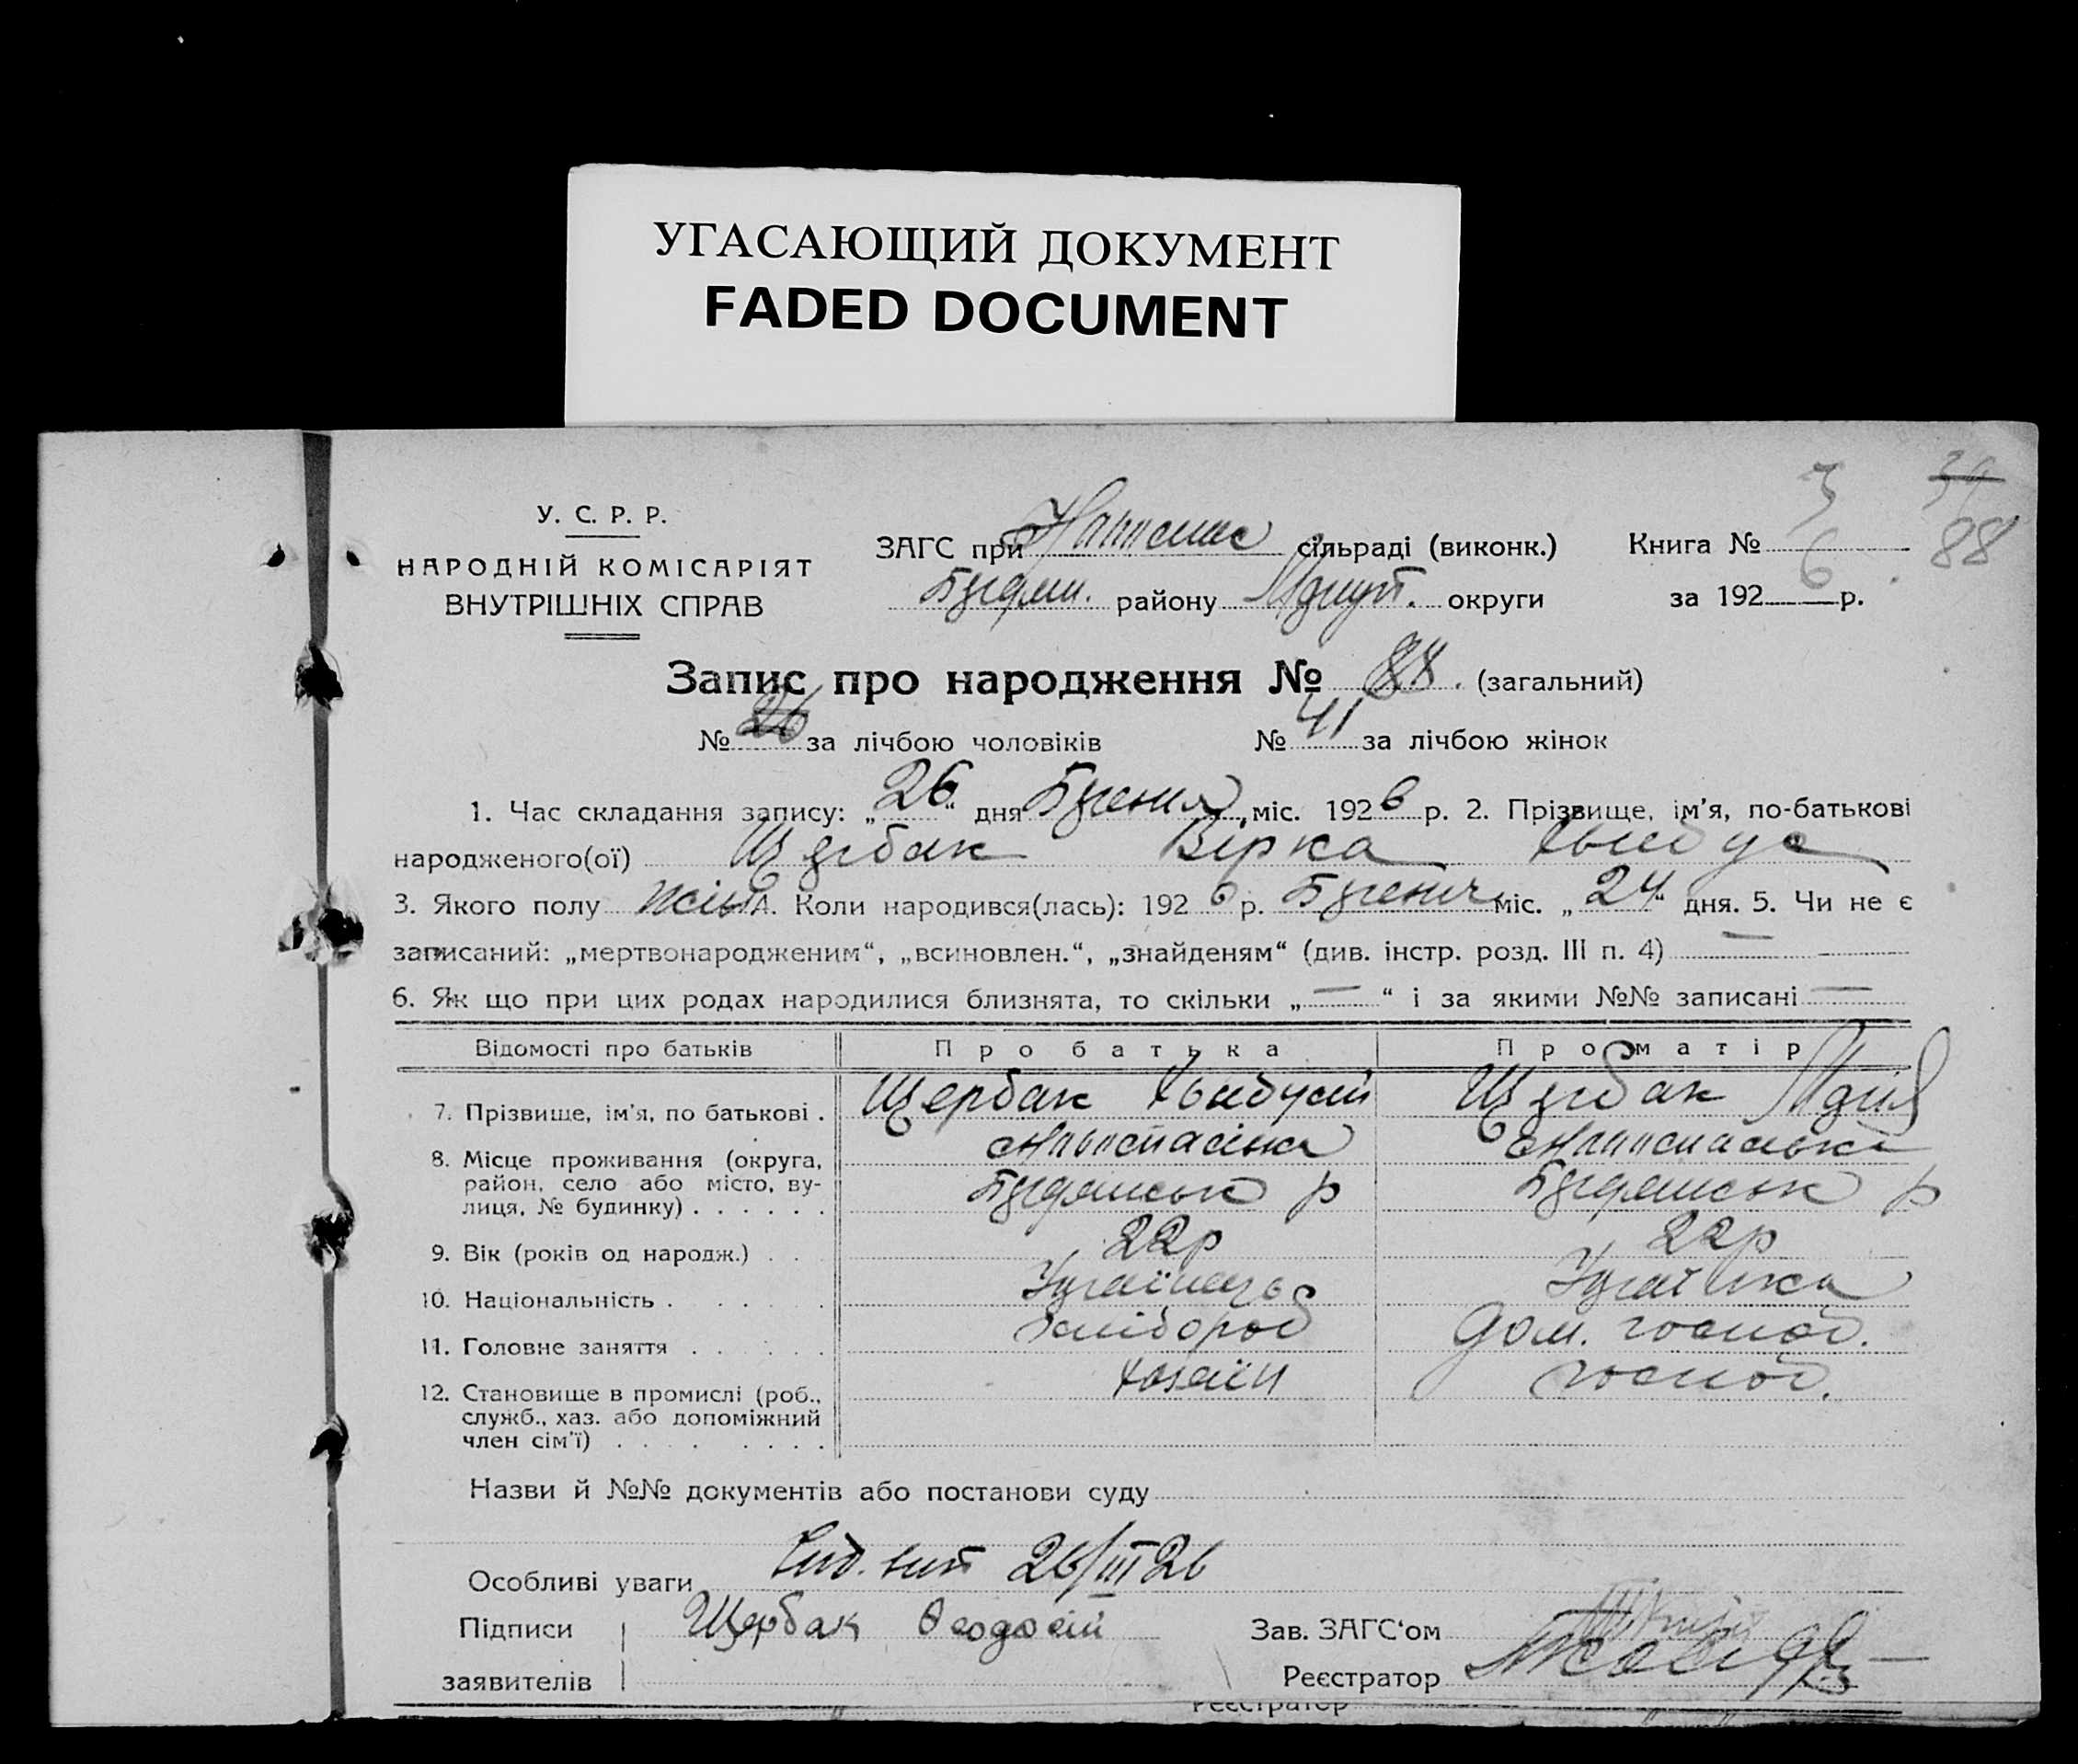 УГАСАЮЩИЙ ДОКУМЕНТ
FADED DOCUMENT
34
88
У. С. Р. Р.
НАРОДНІЙ КОМІСАРІЯТ
ВНУТРІШНІХ СПРАВ
ЗАГС при сільраді (виконк.)
району округи
Книга № 3
за 1926 р.
Запис про народження № 88. (загальний)
№ 26 за лічбою чоловіків № 41 за лічбою жінок
1. Час складання запису: „26“ дня міс. 1926 р. 2. Прізвище, ім'я, по-батькові
народженого(ої) Щербак Вірка
3. Якого полу жін. 4. Коли народився(лась): 1926 р. міс. „24“ дня. 5. Чи не є
записаний: „мертвонародженим“, „всиновлен.“, „знайденям“ (див. інстр. розд. III п. 4) —
6. Як що при цих родах народилися близнята, то скільки „—“ і за якими №№ записані —
Відомості про батьків Про батька Про матір
7. Прізвище, ім'я, по батькові . Щербак Щербак
8. Місце проживання (округа,
район, село або місто, ву-
лиця, № будинку) . . . . . . р р
9. Вік (років од народж.) . . 22р 22р
10. Національність . . . . . Українець Українка
11. Головне заняття . . . . . хлібороб дом. господ.
12. Становище в промислі (роб., хазяїн господ.
служб., хаз. або допоміжний
член сім'ї) . . . . . . . .
Назви й №№ документів або постанови суду
Особливі уваги 26/III 26
Підписи Щербак Феодосій Зав. ЗАГС'ом
заявителів Реєстратор
Реєстратор